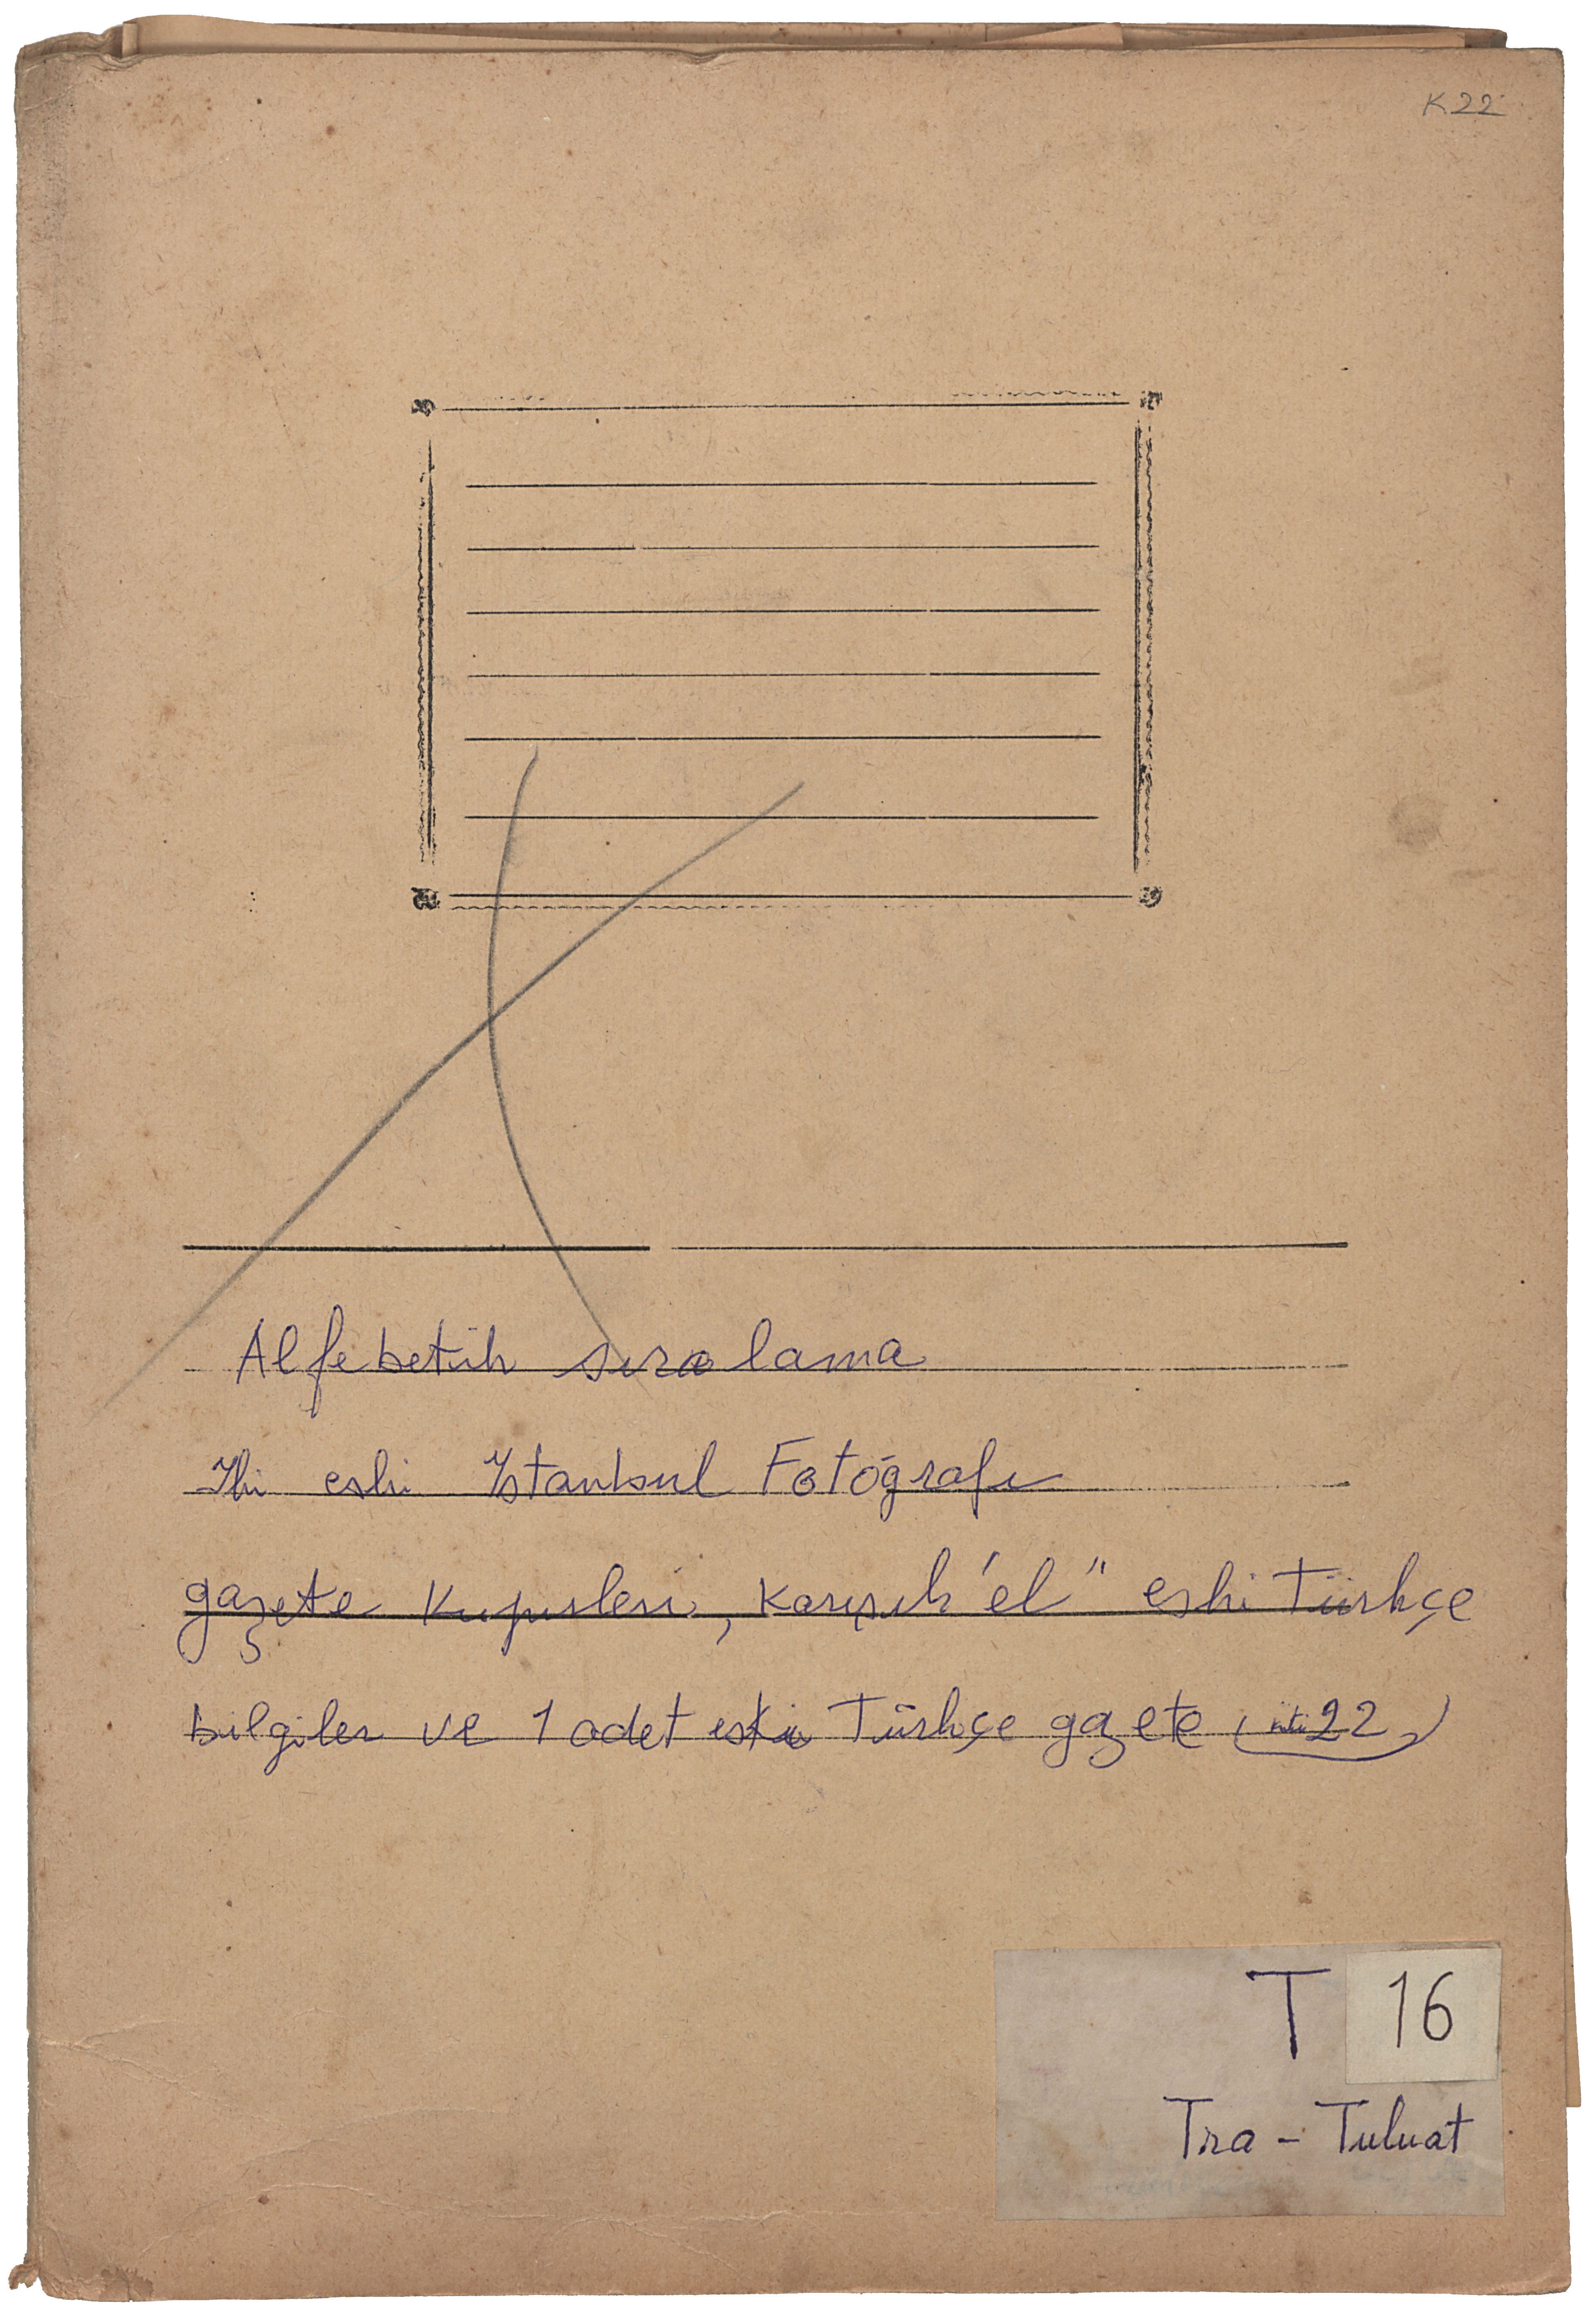 K22
Alfebetik sıralama
İki eski İstanbul Fotoğrafı
gazete kupürleri, karışık "el" eski Türkçe
bilgiler ve 1 adet eski Türkçe gazete ( 22 )
T 16
Tra - Tuluat